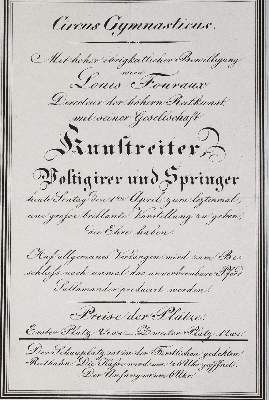 Circus Gymnasticus.
Mit hoher obrigkeitlicher Bewilligung
wird
Louis Fouraux
Directeur der höhern Reitkunst
mit seiner Gesellschaft
Kunstreiter,
Voltigirer und Springer
heute Sontag den 1ten April zum letztenmal
eine große brillante Vorstellung zu geben
die Ehre haben.
Auf allgemeines Verlangen wird zum Be-
schluß noch einmal das unverbrennbare Pferd
Sallamander producirt werden.
Preise der Plätze.
Erster Platz Zweiter Platz
Der Schauplatz ist in der Fürstlichen gedekten
Reitbahn. Die Kasse wird um Uhr geöffnet.
Der Anfang ist um Uhr.